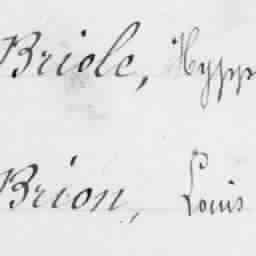 Briole, Hypp
Brion, Louis